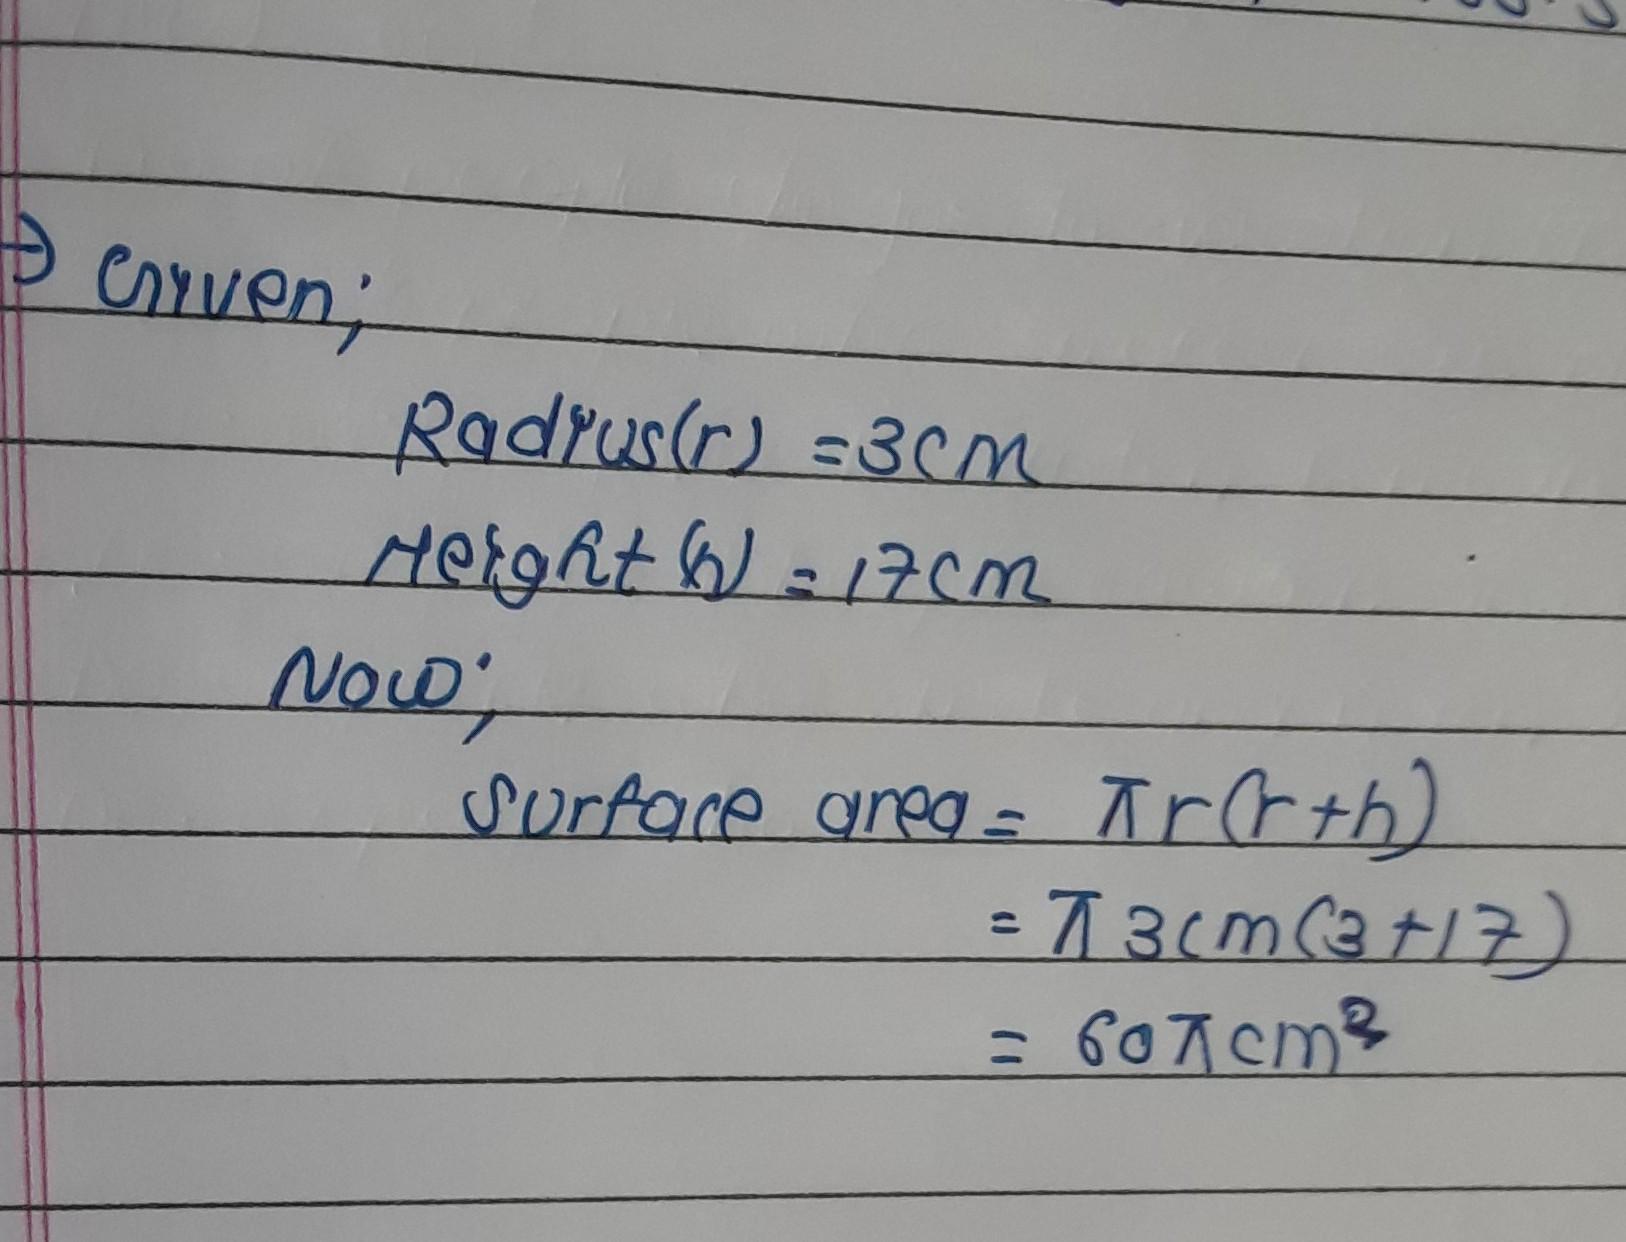 → Given;
Radius(r) = 3cm
Height (h) = 17cm
Now;
Surface area = πr(r+h)
= π 3cm(3+17)
= 60πcm²